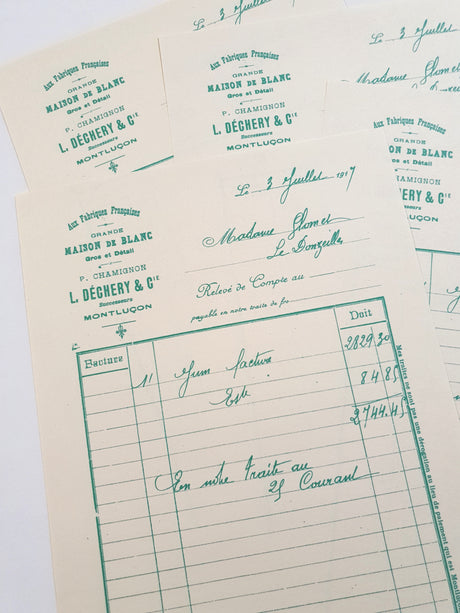 Le 3 Juillet
Aux Fabriques Françaises
GRANDE
MAISON DE BLANC
Gros et Détail
P. CHAMIGNON
L. DÉCHERY & Cie
Successeurs
MONTLUÇON
Le 3 Juillet
Madame Glomet
Aux Fabriques Françaises
GRANDE
MAISON DE BLANC
Gros et Détail
P. CHAMIGNON
L. DÉCHERY & Cie
Successeurs
MONTLUÇON
Aux Fabriques Françaises
GRANDE
MAISON DE BLANC
Gros et Détail
CHAMIGNON
DÉCHERY & Cie
Successeurs
MONTLUÇON
Aux Fabriques Françaises
GRANDE
MAISON DE BLANC
Gros et Détail
P. CHAMIGNON
L. DÉCHERY & Cie
Successeurs
MONTLUÇON
Le 3 Juillet 1917
Madame Glomet
Le Donzeille
Relevé de Compte au
payable en notre traite de frs
Facture
Doit
11 Juin facture 2829 30
Esc 84 85
2744.45
En notre traite au
25 Courant
Mes traites ne sont pas une dérogation au lieu de paiement qui est Montluçon